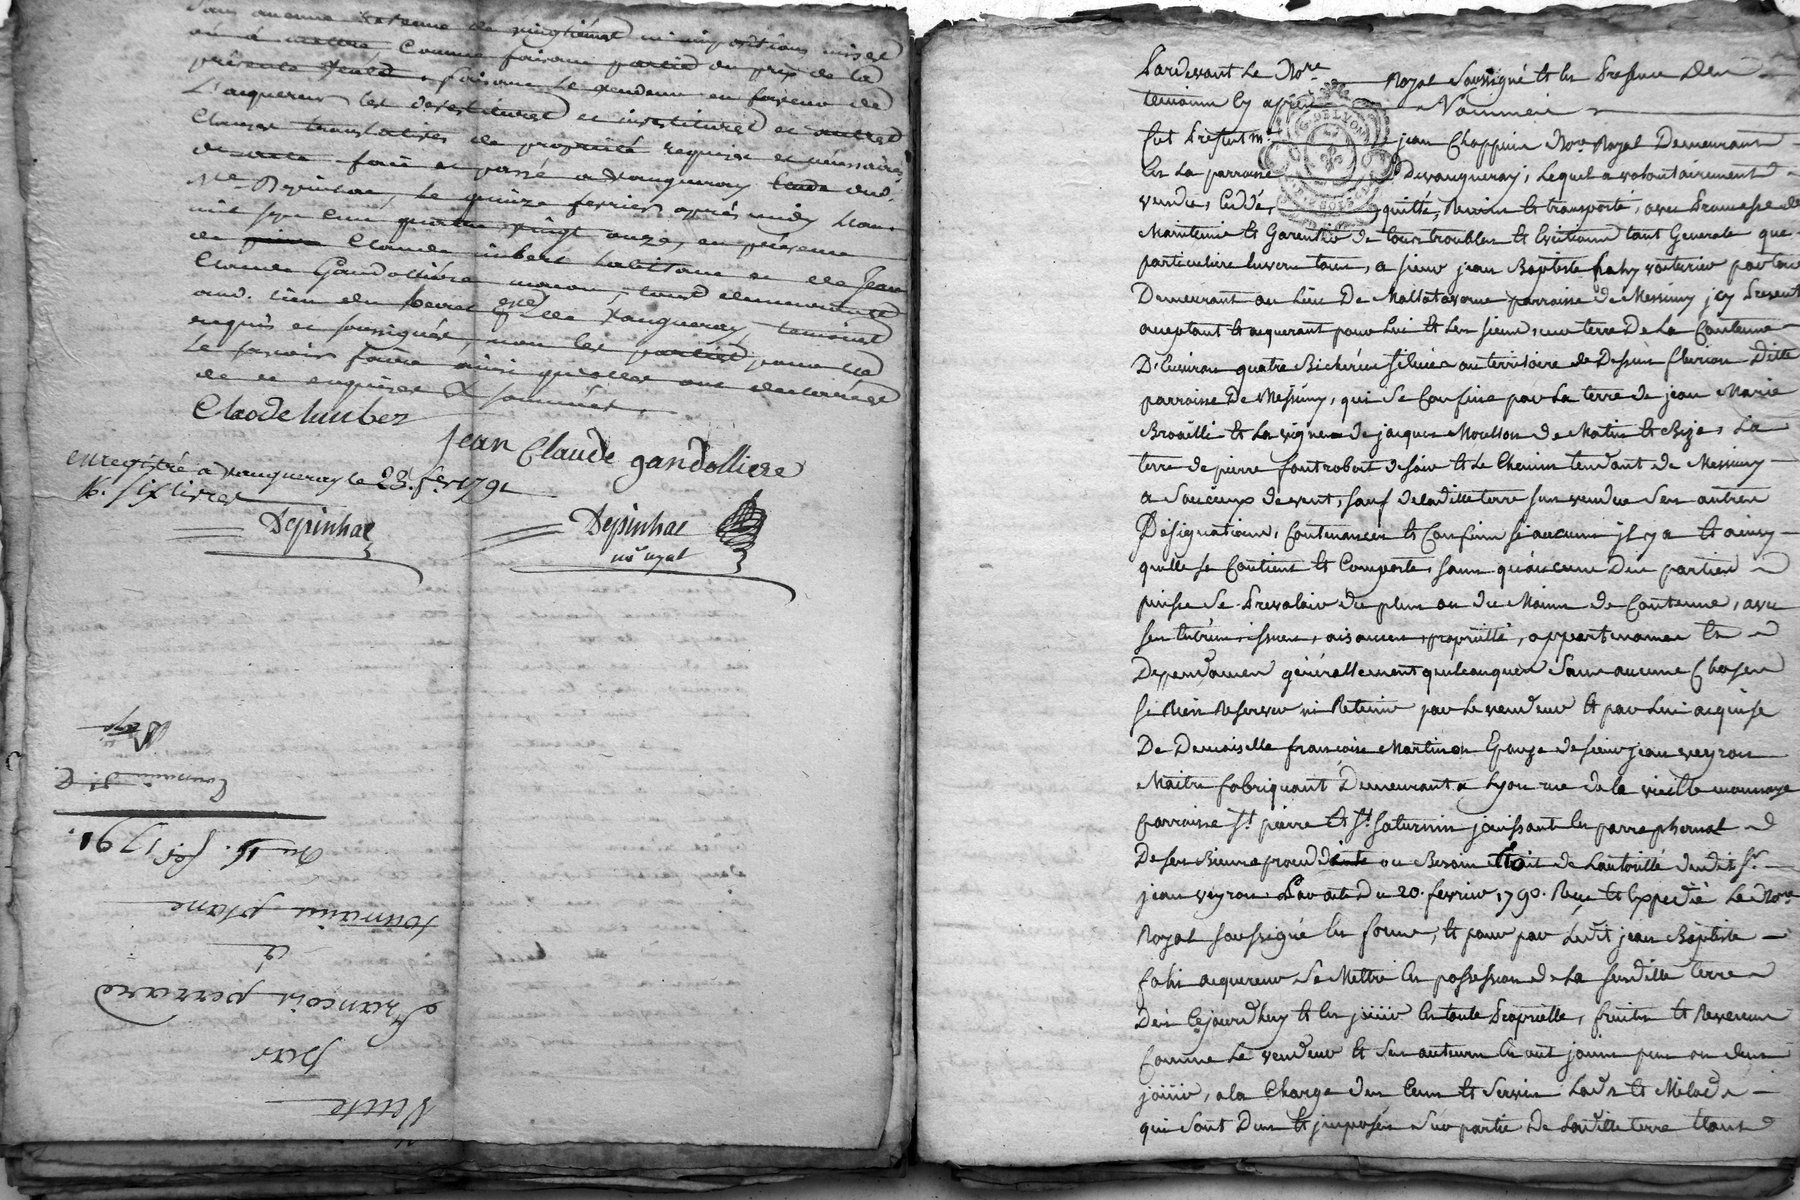 Sans aucune Retenue de vingtiémes ni impositions mises
ou à mettre, Comme faisans partie du prix de la
présente Vente, faisant le vendeur en faveur de
L'acquereur les devestitures et investitures et autres
Clauses translatives de propriété requises et nécessaires
fait et passé a Vaugneray Etude dud.
Me. Depinhac, le quinze fevrier après midy L'an
mil sept cent quatre vingt onze, en présence
de Claude imbert habitant et de Jean
Claude Gandolliere maçon, tous demeurants
aud. lieu de Vaugneray, temoins
requis et soussignés, non les parties pour ne
le savoir faire ainsi qu'elles ont declarées
de ce enquises & sommées.
Claode Imber
jean Claude gandolliere
enregistré a Vaugneray le 28. fer. 1791
R. six livres
Depinhac
Depinhac
no. royal
Vente
par
François perrard
à
romain plane
Du 15. fer. 1791.
Pardevant Le Nore. Royal Soussigné Et En Presence Des
temoins Cy après Nommés
fut Present me. jean Chappuis Nore. Royal Demeurant
En La parroisse De Vaugneray, Lequel a volontairement
vendu, Cedé, quitté, Remis Et transporté, avec Promesse de
Maintenir Et Garentir de tous troubles Et Evictions tant Generale que
particuliere Envers tous, a sieur jean Baptiste fahy voiturier par terre
Demeurant au Lieu De Maltataverne parroisse de Messimy icy Present
acceptant Et acquerant pour Lui Et Les siens, une terre De La Contenue
D'Environ quatre Bicherées située au territoire de Dessus Clerion Ditte
parroisse De Messimy, qui Se Confine par La terre de jean Marie
Brouilli Et La vigne de jacques Moullon de Matin Et Bize, La
terre de pierre fontrobert de soir Et Le Chemin tendant de Messimy
a Soucieux de vent, sauf de laditte terre sus vendue Ses autres
Désignations, Contenances Et Confins si aucuns il y a Et ainsy
qu'elle se Contient Et Comporte, sans qu'aucune Des parties
puisse Se Prevaloir du plus ou du Moins de Contenue, avec
ses Entrées, issues, aisances, propriétté, appartenances Et
Deppendances générallement quelconques Sans aucune Choses
se Rien Reserver ni Retenir par Le vendeur Et par Lui acquise
De Demoiselle françoise Martinon Epouze de sieur jean veyron
Maitre fabriquant Demeurant a Lyon rue de la vieille monnoye
Parroisse St. pierre Et St. Saturnin jouissant En parraphernal
De ses Biens procedante ou Besoin Etoit de L'autorité dudit Sr.
jean veyron Par acte Du 20. fevrier 1790. Reçu Et Expedié Le Nore.
Royal soussigné En forme, Et pour par Ledit jean Baptiste
fahi acquereur Se Mettre En possession de La susditte terre
Des Cejourd'huy Et En jouir En toute Proprietté, fruits Et Revenus
Comme Le vendeur Et Ses auteurs En ont jouis peu ou deu
jouir, a la Charge Des Cens Et Servis Lods Et Milods
qui Sont Dus Et imposés Sur partie De Laditte terre Etant